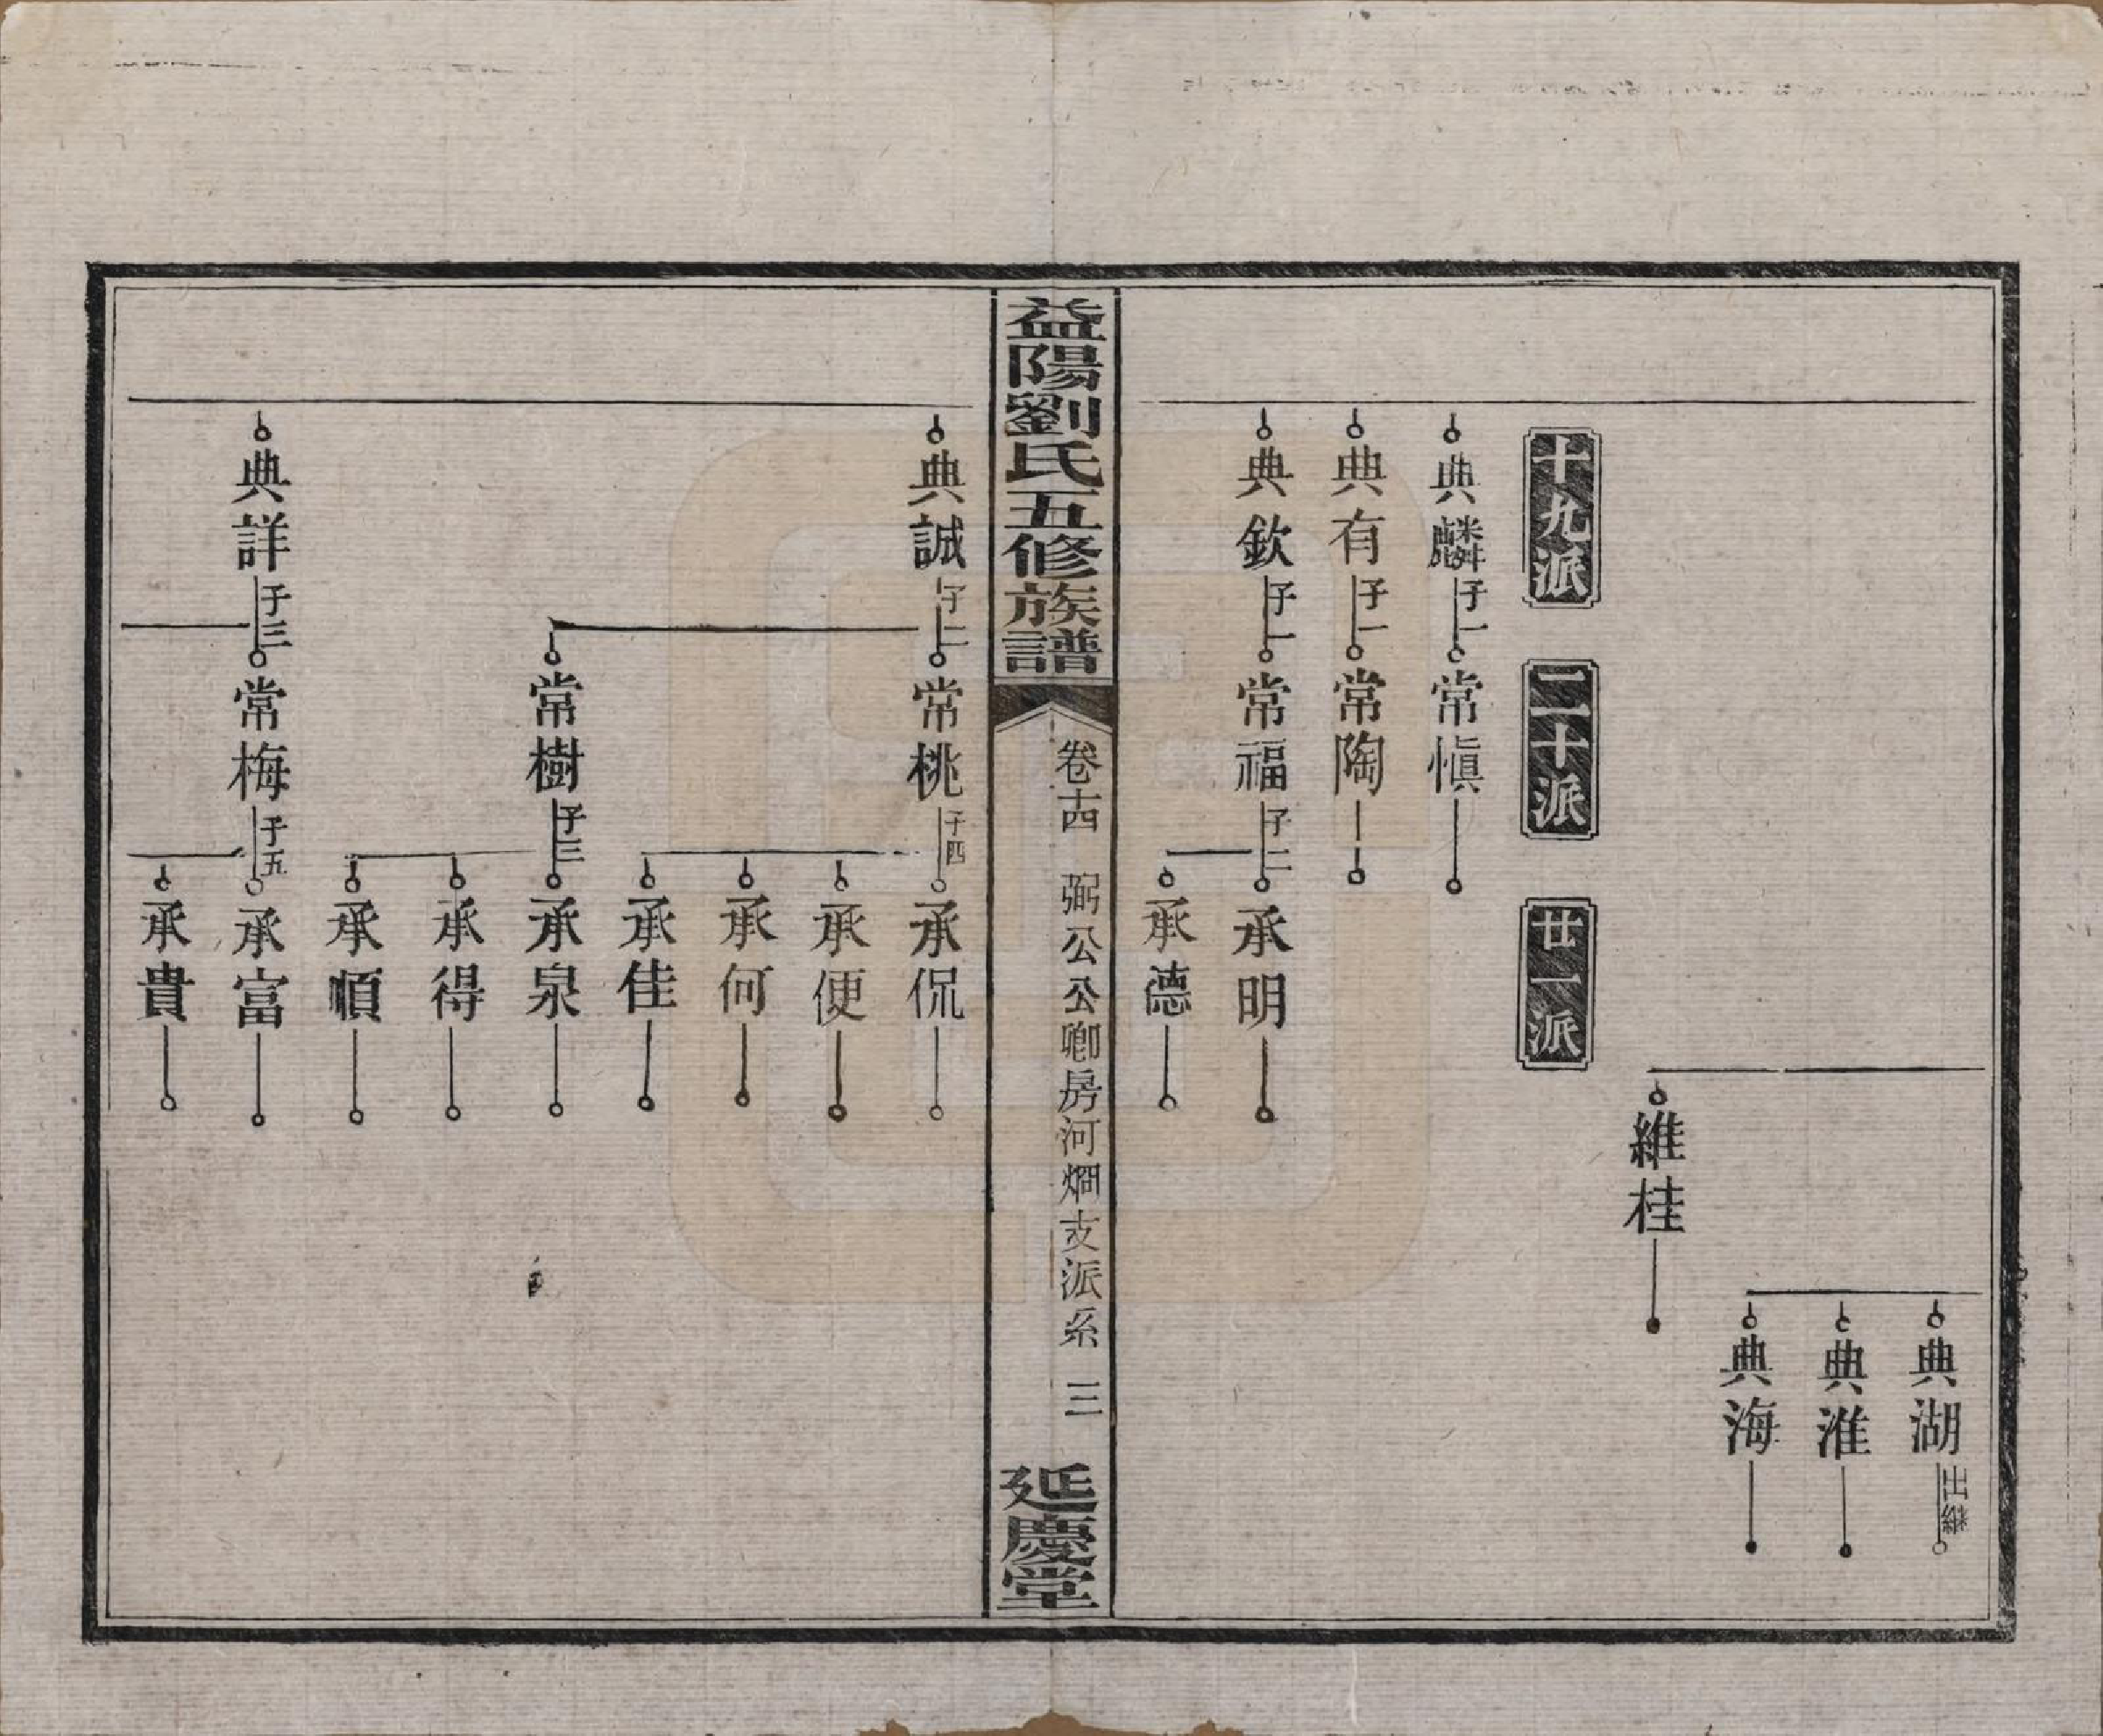 典湖
典淮
典海
維桂
十九派 二十派 廿一派
典麟 子一 常慎
典有 子一 常陶
典欽 子一 常福 子二 承明
承德
益陽劉氏五修族譜
卷十四 弼公公卿房河烱支派系 三
延慶堂
典誠 子二 常桃 子四 承侃
承便
承何
承佳
常樹 子三 承泉
承得
承順
典詳 子三 常梅 子五 承富
承貴